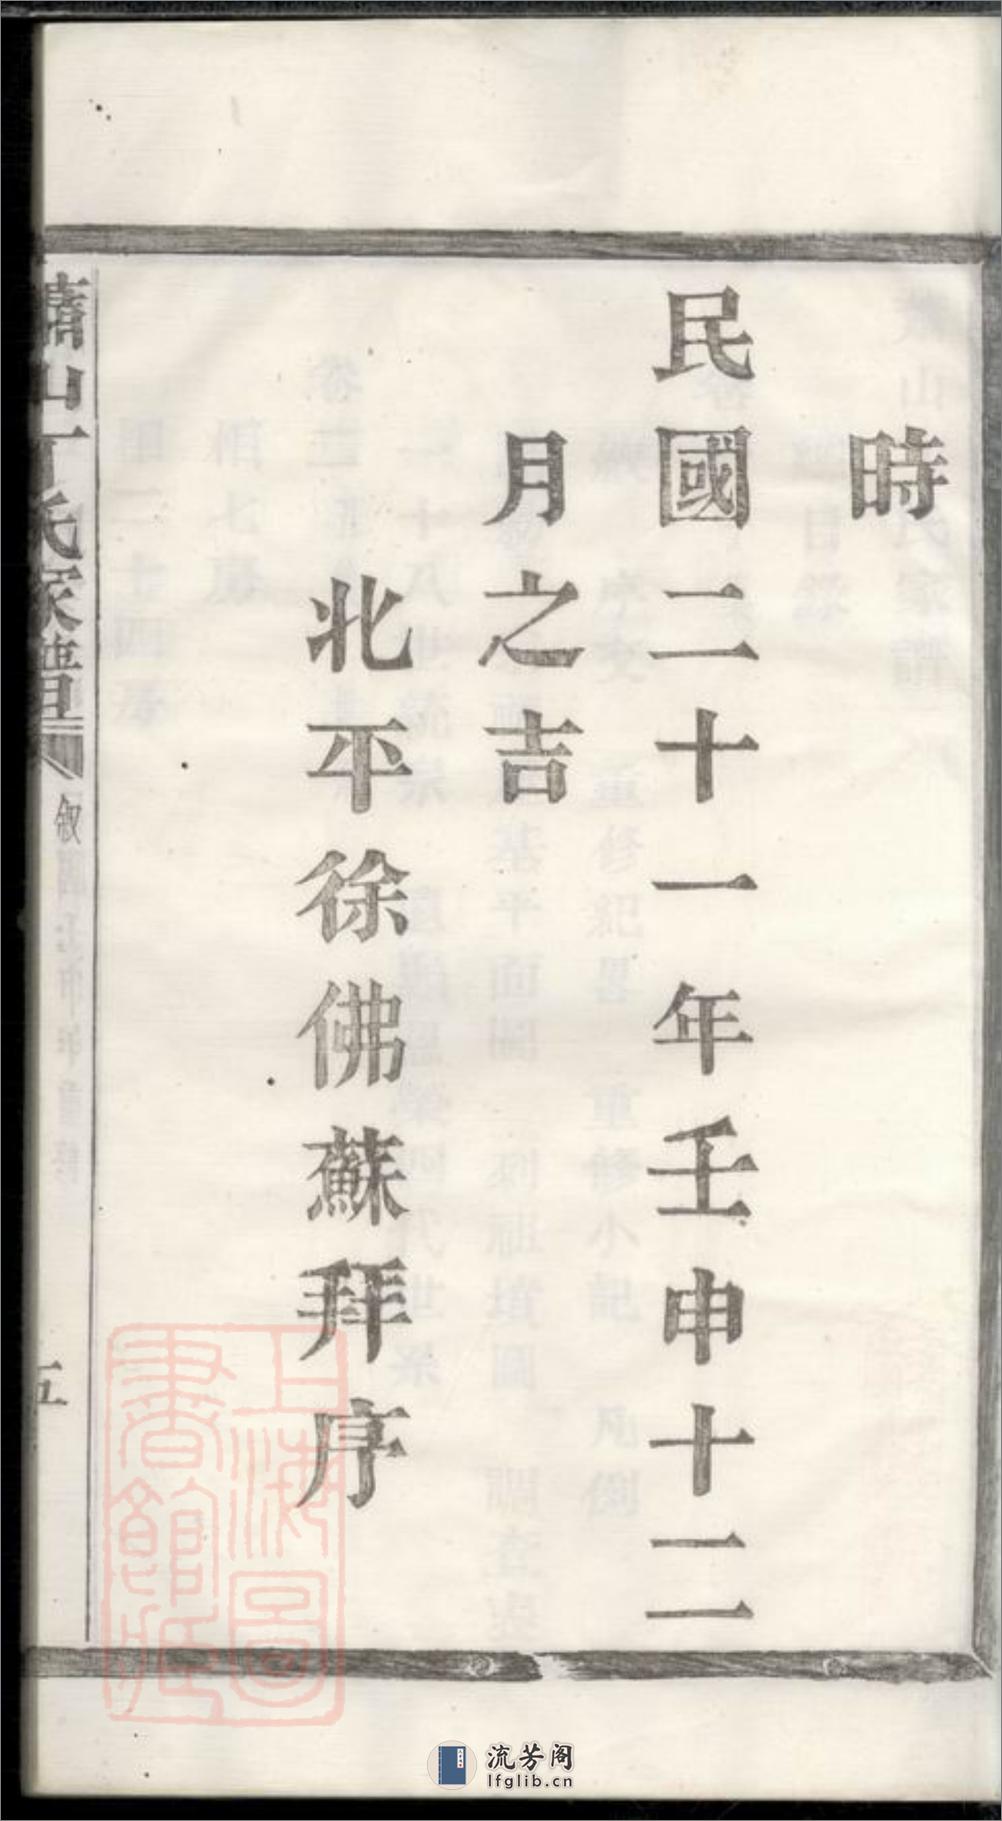 時
民國二十一年壬申十二
月之吉
北平徐佛蘇拜序
蕭山丁氏家譜
敘
五
上海圖
書館藏
流芳阁
lfglib.cn